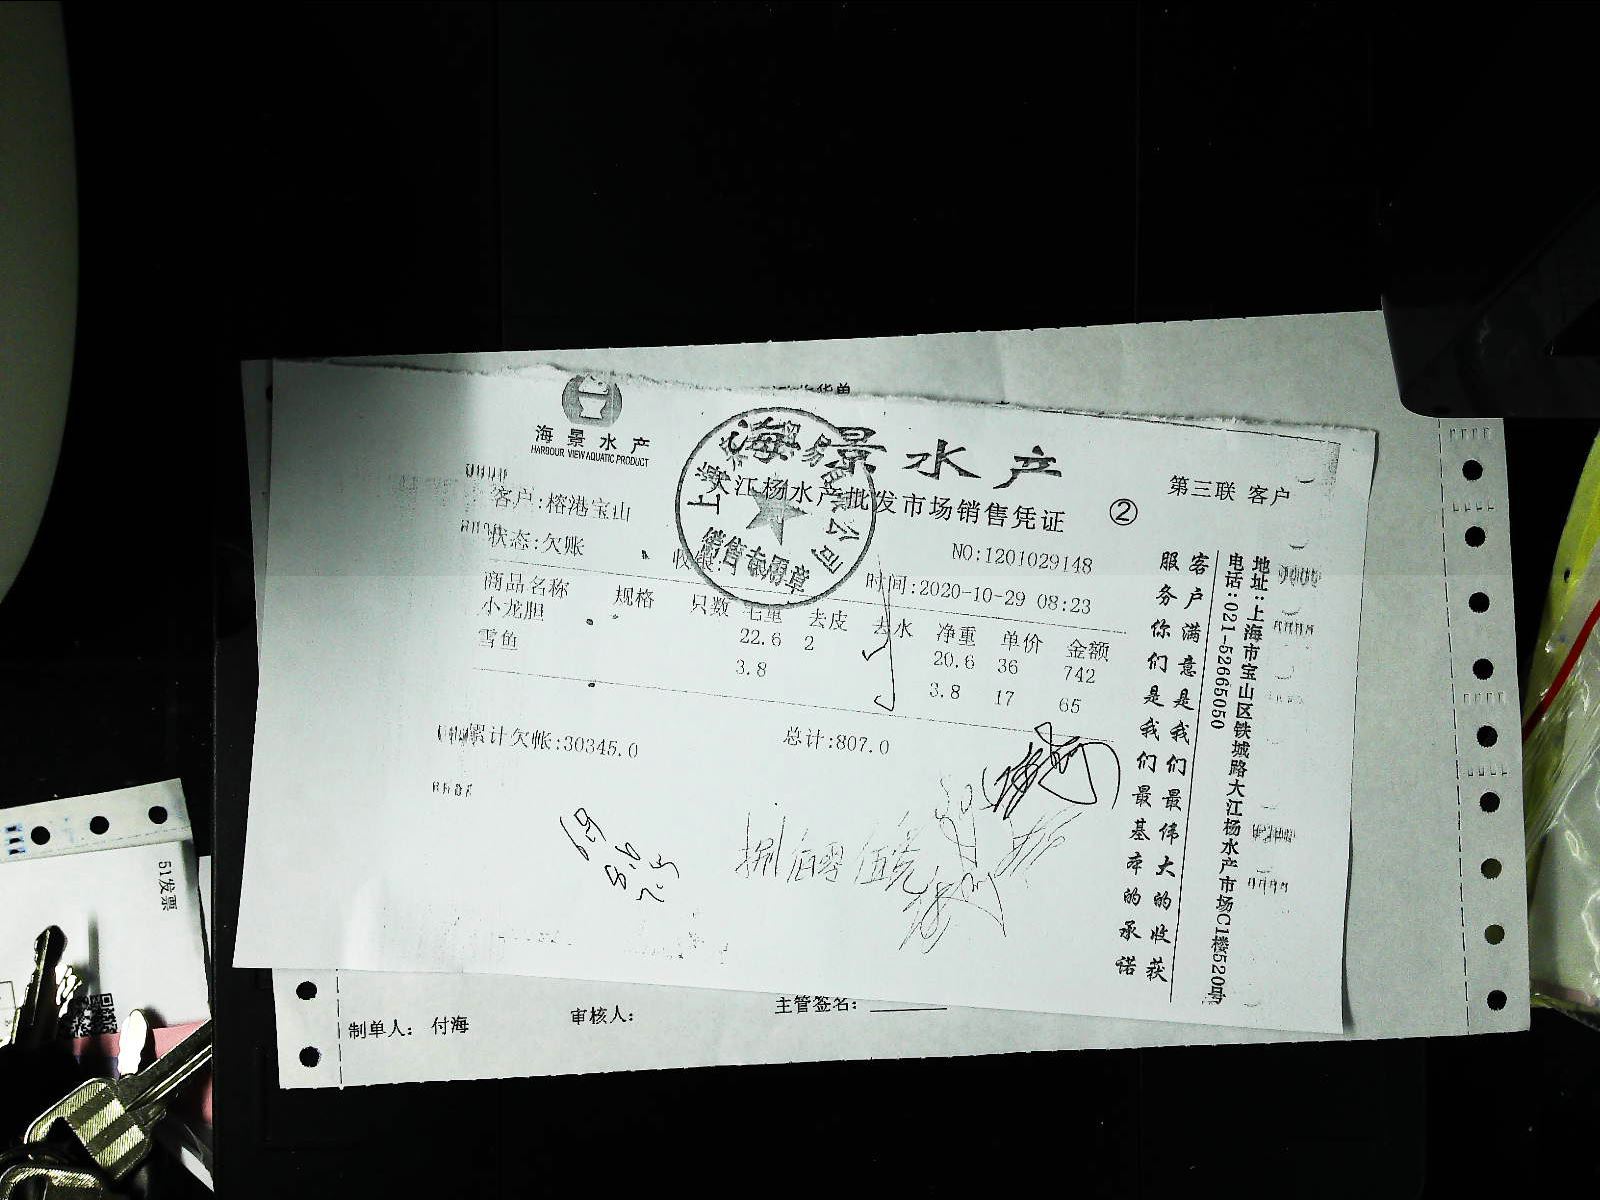 海景水产
HARBOUR VIEW AQUATIC PRODUCT
海景水产
大江杨水产批发市场销售凭证 ②
第三联 客户
客户:榕港宝山
NO:1201029148
状态:欠账
收银:
时间:2020-10-29 08:23
销售专用章
商品名称 规格 只数 毛重 去皮 去水 净重 单价 金额
小龙胆 22.6 2 20.6 36 742
雪鱼 3.8 3.8 17 65
累计欠帐:30345.0
总计:807.0
捌佰零伍元
客户满意是我们最伟大的收获
服务你们是我们最基本的承诺
地址:上海市宝山区铁城路大江杨水产市场C1楼520号
电话:021-52665050
制单人: 付海
审核人:
主管签名:
51发票